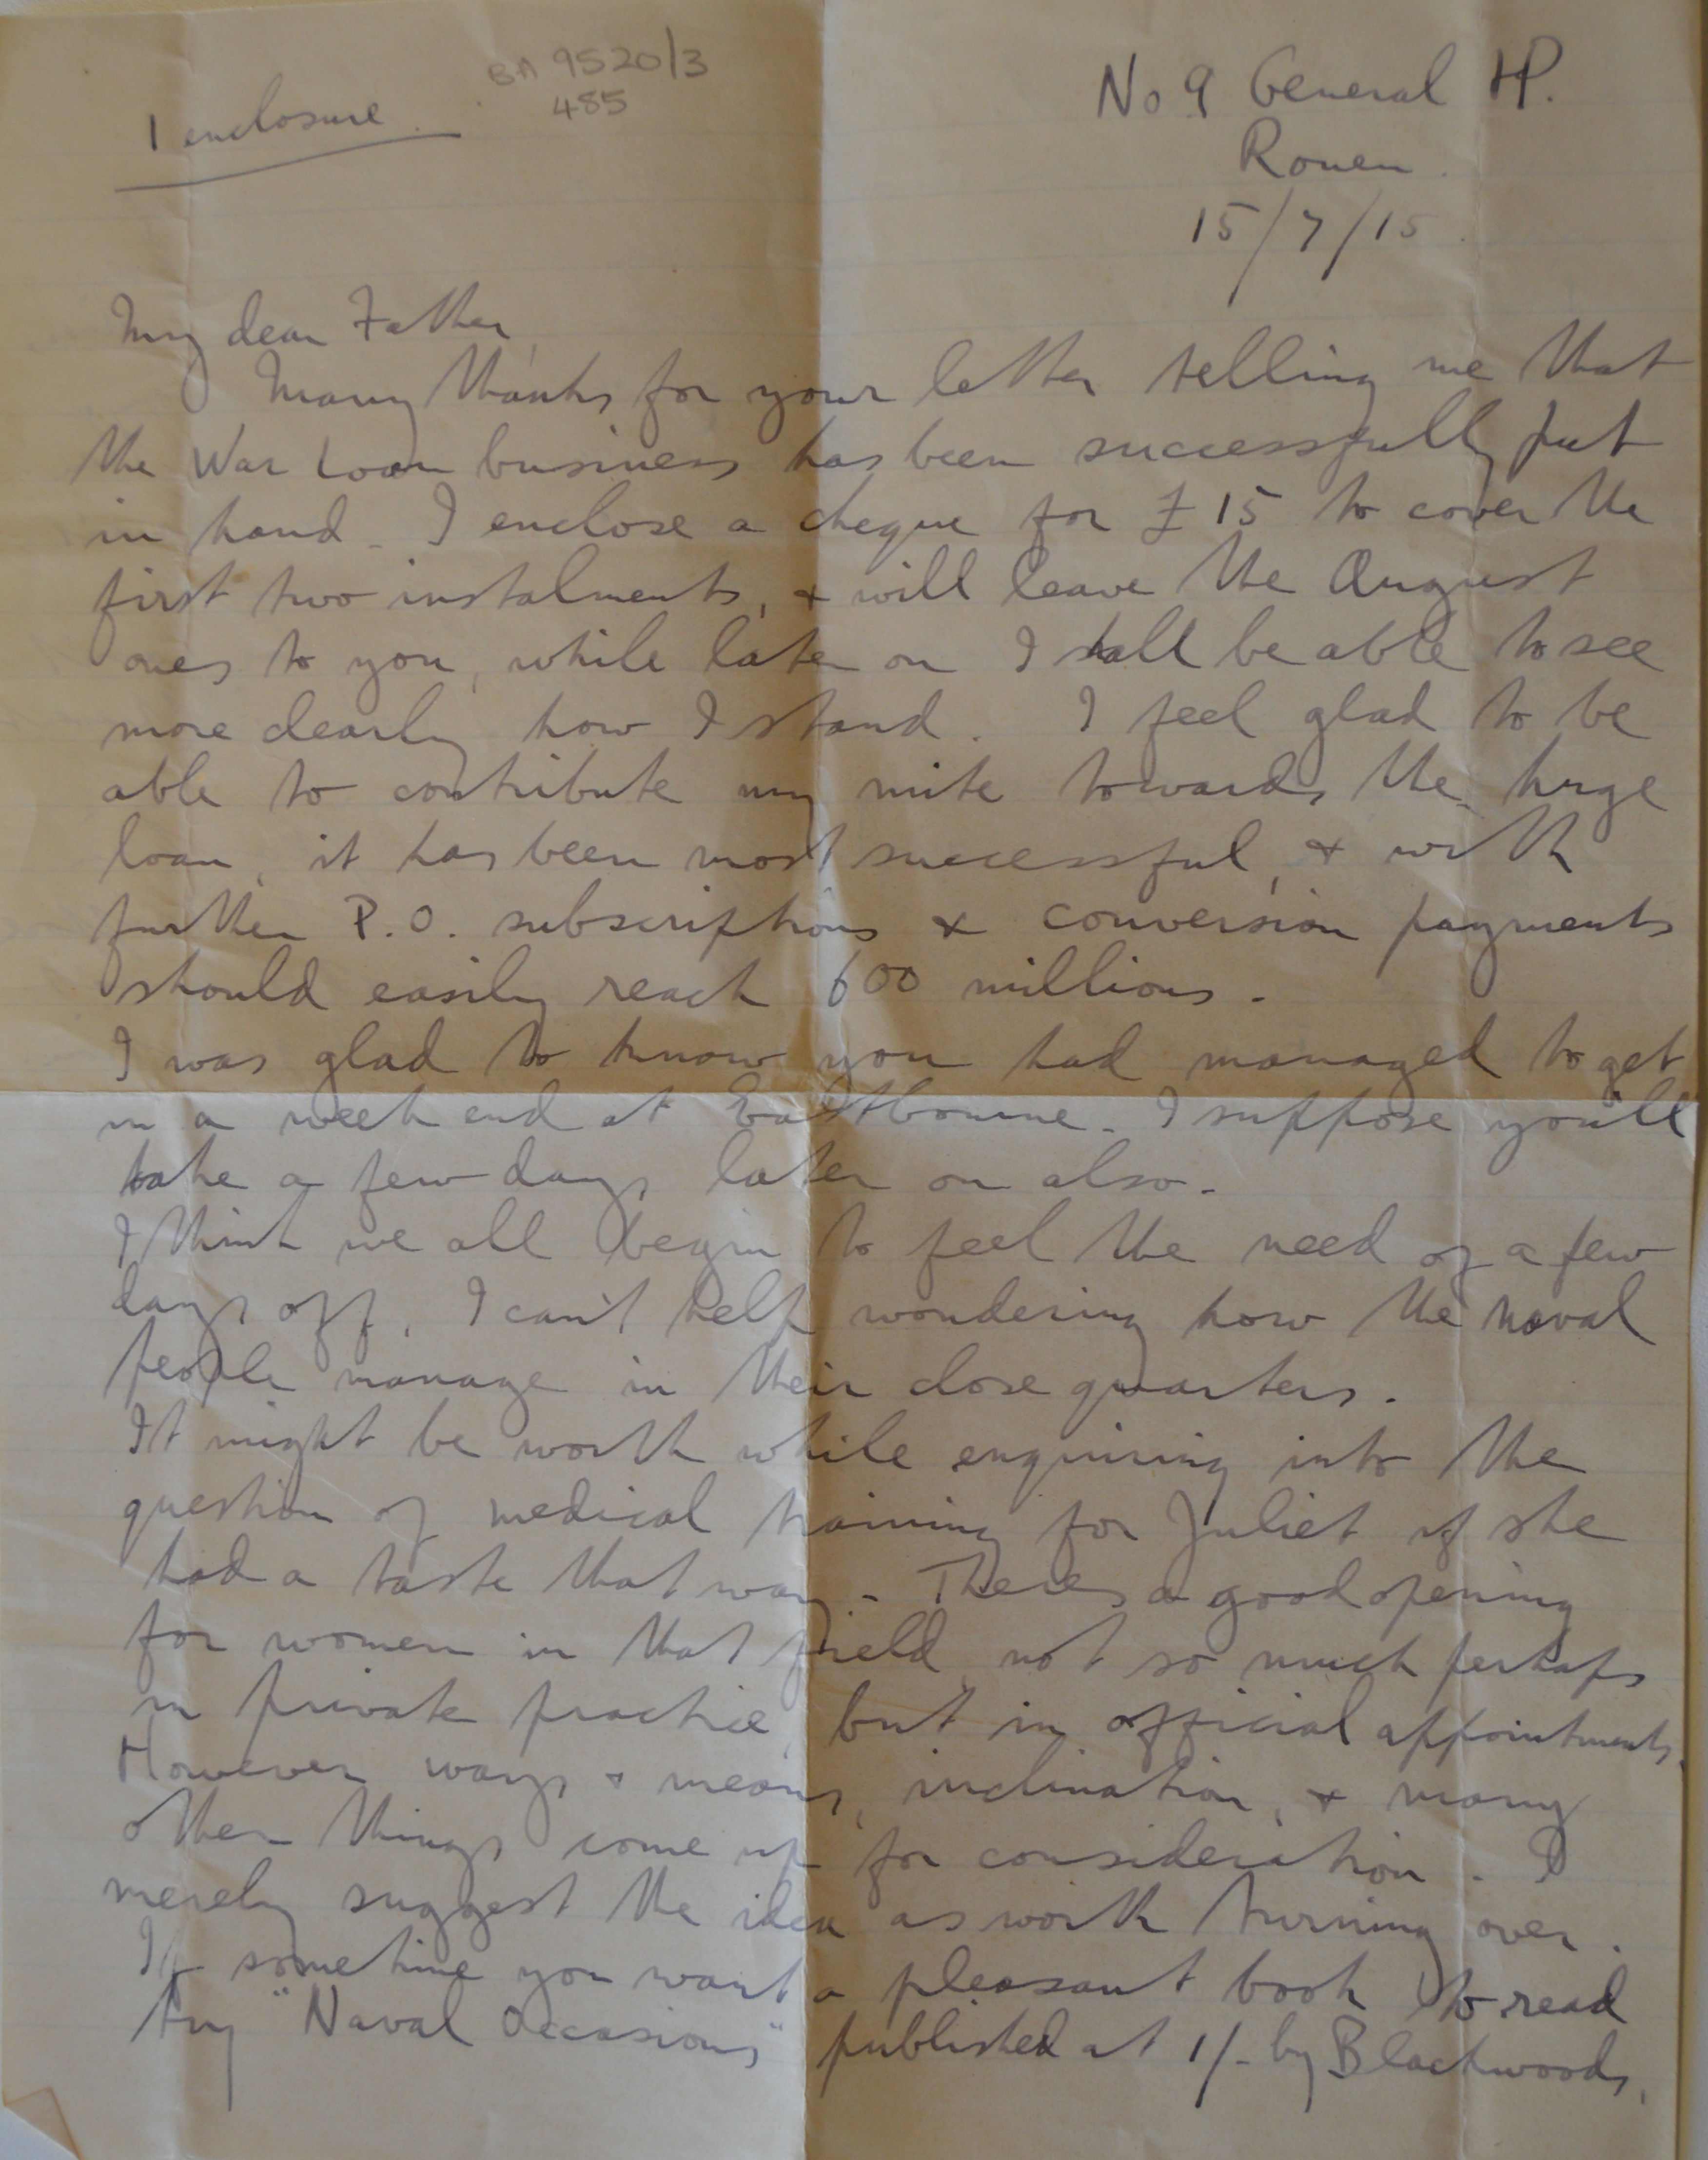 BA 9520/3
485
1 enclosure
No 9 General HP.
Rouen.
15/7/15.
My dear Father,
Many thanks for your letter telling me that
the War Loan business has been successfully put
in hand. I enclose a cheque for £15 to cover the
first two instalments, & will leave the August
ones to you, while later on I shall be able to see
more clearly how I stand. I feel glad to be
able to contribute my mite towards the huge
loan, it has been most successful, & with
further P.O. subscriptions & conversion payments
should easily reach 600 millions.
I was glad to know you had managed to get
in a week end at Eastbourne. I suppose you'll
take a few days later on also.
I think we all begin to feel the need of a few
days off, I can't help wondering how the naval
people manage in their close quarters.
It might be worth while enquiring into the
question of medical training for Juliet if she
had a taste that way. There's a good opening
for women in that field, not so much perhaps
in private practice, but in official appointments.
However ways & means, inclination, & many
other things come up for consideration. I
merely suggest the idea as worth turning over.
If sometime you want a pleasant book to read
try "Naval Occasions" published at 1/- by Blackwoods,